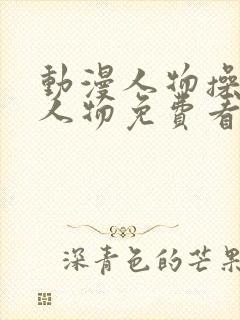 動漫人物操
人物免費看
深青色的芒果